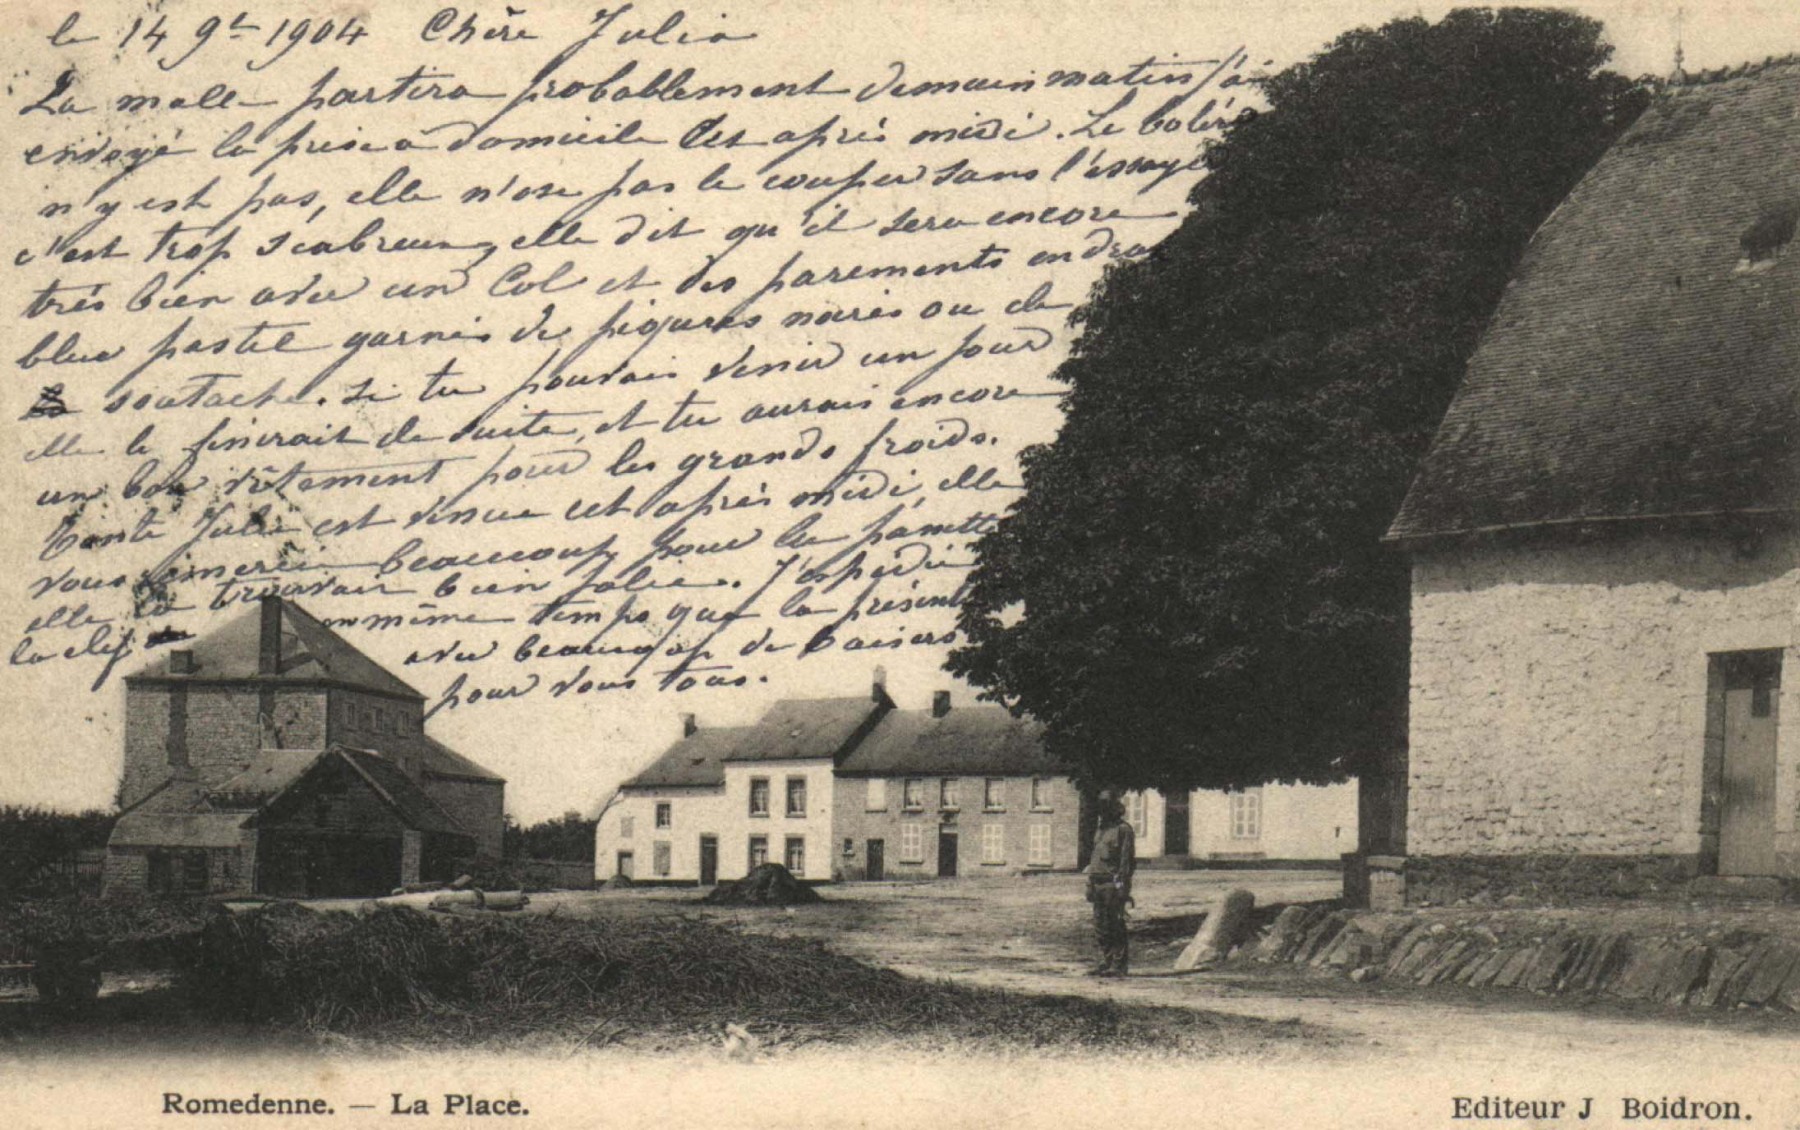 le 14 9bre 1904 Chère Julia
La malle partira probablement demain matin j'ai
envoyé la prise à domicile cet après midi. Le boléro
n'y est pas, elle n'ose pas le couper sans l'essayer
c'est trop scabreux, elle dit qu'il sera encore
très bien avec un Col et des parements en drap
bleu pastel garnis de piqures noires ou de
soutache. Si tu pouvais venir un jour
elle le finirait de suite, et tu aurais encore
un bon vêtement pour les grands froids.
Tante Julie est venue cet après midi, elle
vous remercie beaucoup pour la
elle la trouvait bien jolie. J'expédie
la clef en même temps que la présente
avec beaucoup de baisers
pour vous tous.
Romedenne. — La Place.
Editeur J Boidron.